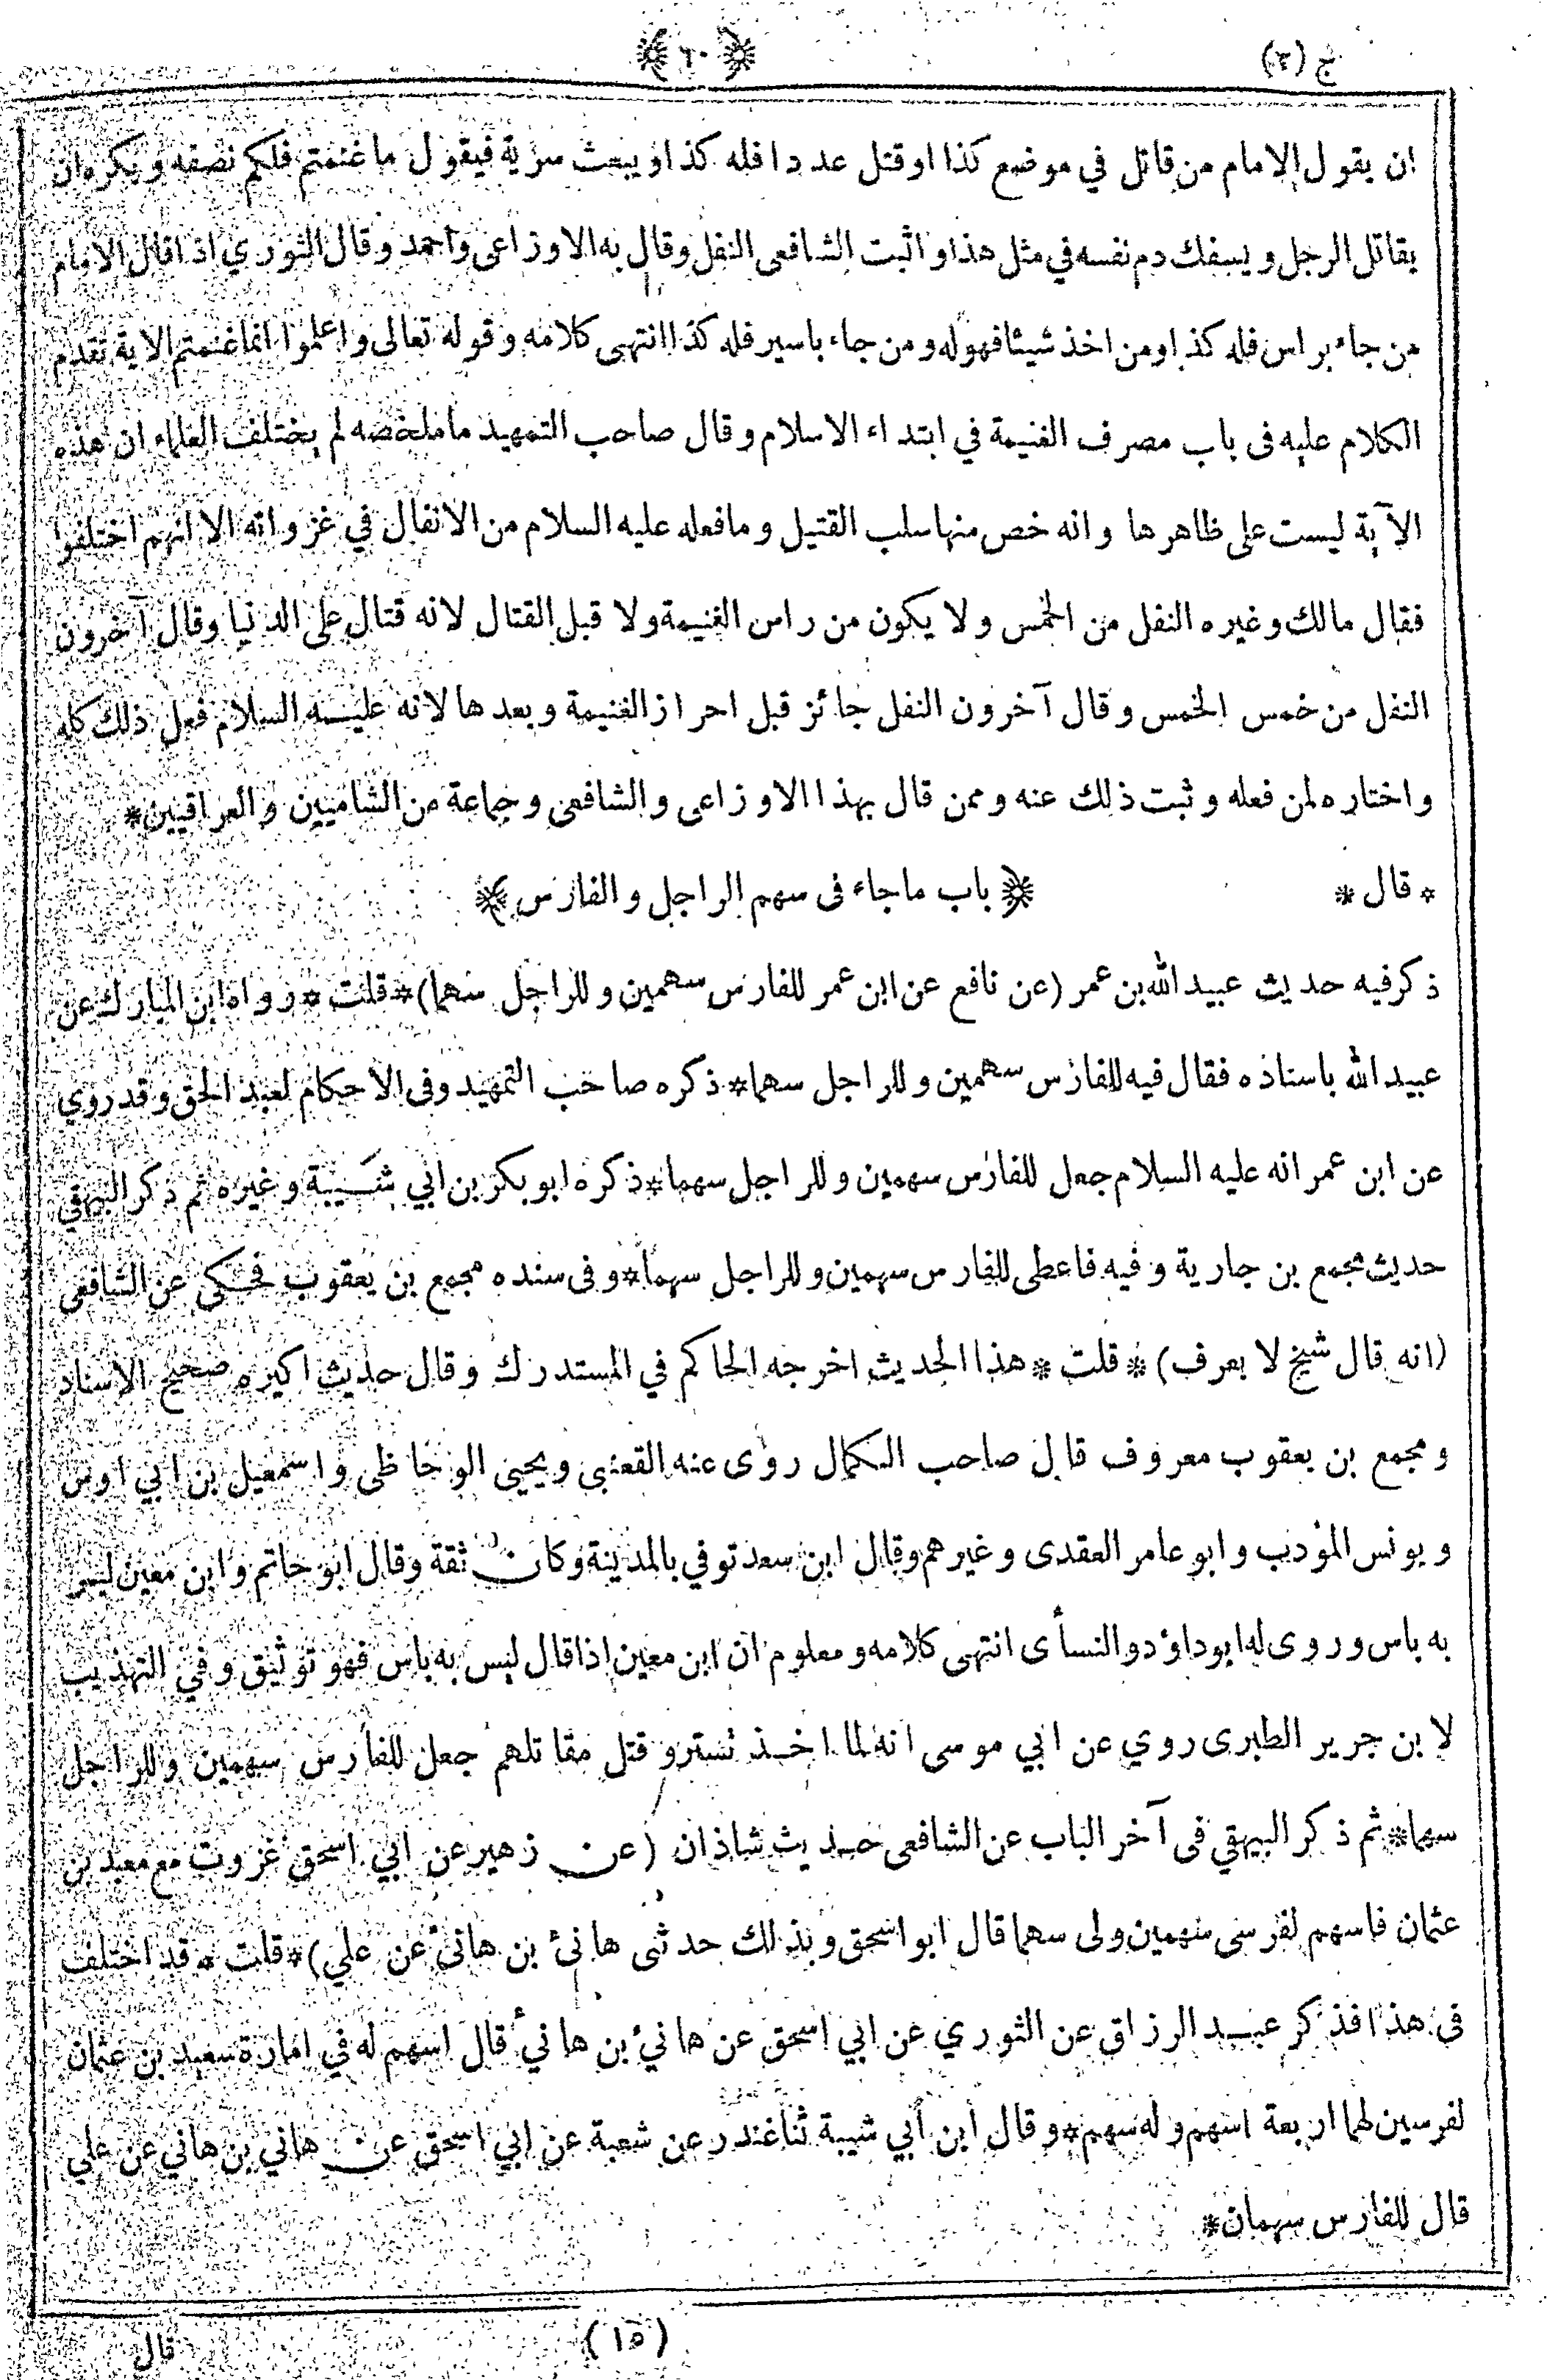 ج (٣)
﴿ ٦٠ ﴾
ان يقول الامام من قاتل في موضع كذا او قتل عددا فله كذا او يبعث سرية فيقول ما غنمتم فلكم نصفه ويكره ان
يقاتل الرجل ويسفك دم نفسه في مثل هذا واثبت الشافعى النفل وقال به الاوزاعى واحمد وقال الثوري اذا قال الامام
من جاء براس فله كذا ومن اخذ شيئا فهو له ومن جاء باسير فله كذا انتهى كلامه وقوله تعالى واعلموا انما غنمتم الاية تقدم
الكلام عليه فى باب مصرف الغنيمة في ابتداء الاسلام وقال صاحب التمهيد ما ملخصه لم يختلف العلماء ان هذه
الآية ليست على ظاهرها وانه خص منها سلب القتيل وما فعله عليه السلام من الانفال في غزواته الا انهم اختلفوا
فقال مالك وغيره النفل من الخمس ولا يكون من راس الغنيمة ولا قبل القتال لانه قتال على الدنيا وقال آخرون
النفل من خمس الخمس وقال آخرون النفل جائز قبل احراز الغنيمة وبعدها لانه عليه السلام فعل ذلك كله
واختاره لمن فعله وثبت ذلك عنه وممن قال بهذا الاوزاعى والشافعى وجماعة من الشاميين والعراقيين*
* قال * ﴿ باب ما جاء فى سهم الراجل والفارس ﴾
ذكر فيه حديث عبيد الله بن عمر (عن نافع عن ابن عمر للفارس سهمين وللراجل سهما) * قلت * رواه ابن المبارك عن
عبيد الله باسناده فقال فيه للفارس سهمين وللراجل سهما* ذكره صاحب التمهيد وفى الاحكام لعبد الحق وقد روي
عن ابن عمر انه عليه السلام جعل للفارس سهمين وللراجل سهما* ذكره ابو بكر بن ابي شيبة وغيره ثم ذكر البيهقي
حديث مجمع بن جارية وفيه فاعطى للفارس سهمين وللراجل سهما* وفى سنده مجمع بن يعقوب فحكى عن الشافعى
(انه قال شيخ لا يعرف) * قلت * هذا الحديث اخرجه الحاكم في المستدرك وقال حديث كبير صحيح الاسناد
ومجمع بن يعقوب معروف قال صاحب الكمال روى عنه القعنبى ويحيى الوحاظى واسمعيل بن ابي اوس
ويونس المؤدب وابو عامر العقدى وغيرهم وقال ابن سعد توفي بالمدينة وكان ثقة وقال ابو حاتم وابن معين ليس
به باس وروى له ابو داؤد والنسأى انتهى كلامه ومعلوم ان ابن معين اذا قال ليس به باس فهو توثيق وفي التهذيب
لابن جرير الطبرى روي عن ابي موسى انه لما اخذ تستر وقتل مقاتلهم جعل للفارس سهمين وللراجل
سهما* ثم ذكر البيهقي فى آخر الباب عن الشافعى حديث شاذان (عن زهير عن ابي اسحق غزوت مع معبد بن
عثمان فاسهم لفرسى سهمين ولى سهما قال ابو اسحق وبذلك حدثنى هانئ بن هانئ عن علي) * قلت * قد اختلف
فى هذا فذكر عبد الرزاق عن الثوري عن ابي اسحق عن هانئ بن هانئ قال اسهم له في امارة سعيد بن عثمان
لفرسين لهما اربعة اسهم وله سهم* وقال ابن أبي شيبة ثنا غندر عن شعبة عن ابي اسحق عن هاني بن هاني عن علي
قال للفارس سهمان*
(١٥)
قال